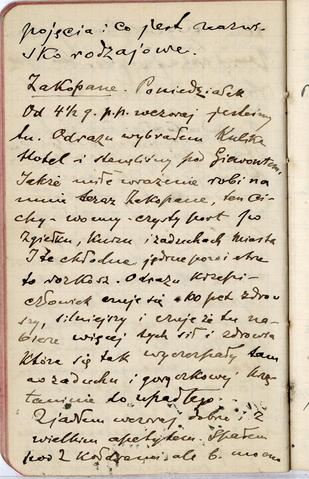 pojęcia i co jest nazwi-
sko rodzajowe.
Zakopane. Poniedziałek
Od 4½ g. p.p. wczoraj jesteśmy
tu. Odrazu wybrałem
Hotel i stanęliśmy pod Giewontem,
Jakże miłe wrażenie robi na
mnie teraz Zakopane, ten ci-
chy - wonny - czysty port po
zgiełku, kurzu i zaduchach miasta
I te chłodne jędrne powietrze
to rozkosz. Odrazu
człowiek czuje się o zdrow-
szy, silniejszy i czuje że tu na-
bierze więcej tych sił i zdrowia
które się tak wyczerpały tam
w zaduchu i gorączkowej
do upadłego.
Zjadłem wczoraj dobrze i z
wielkim apetytem. Spałem
pod 2 kołdrami, ale b. mocno